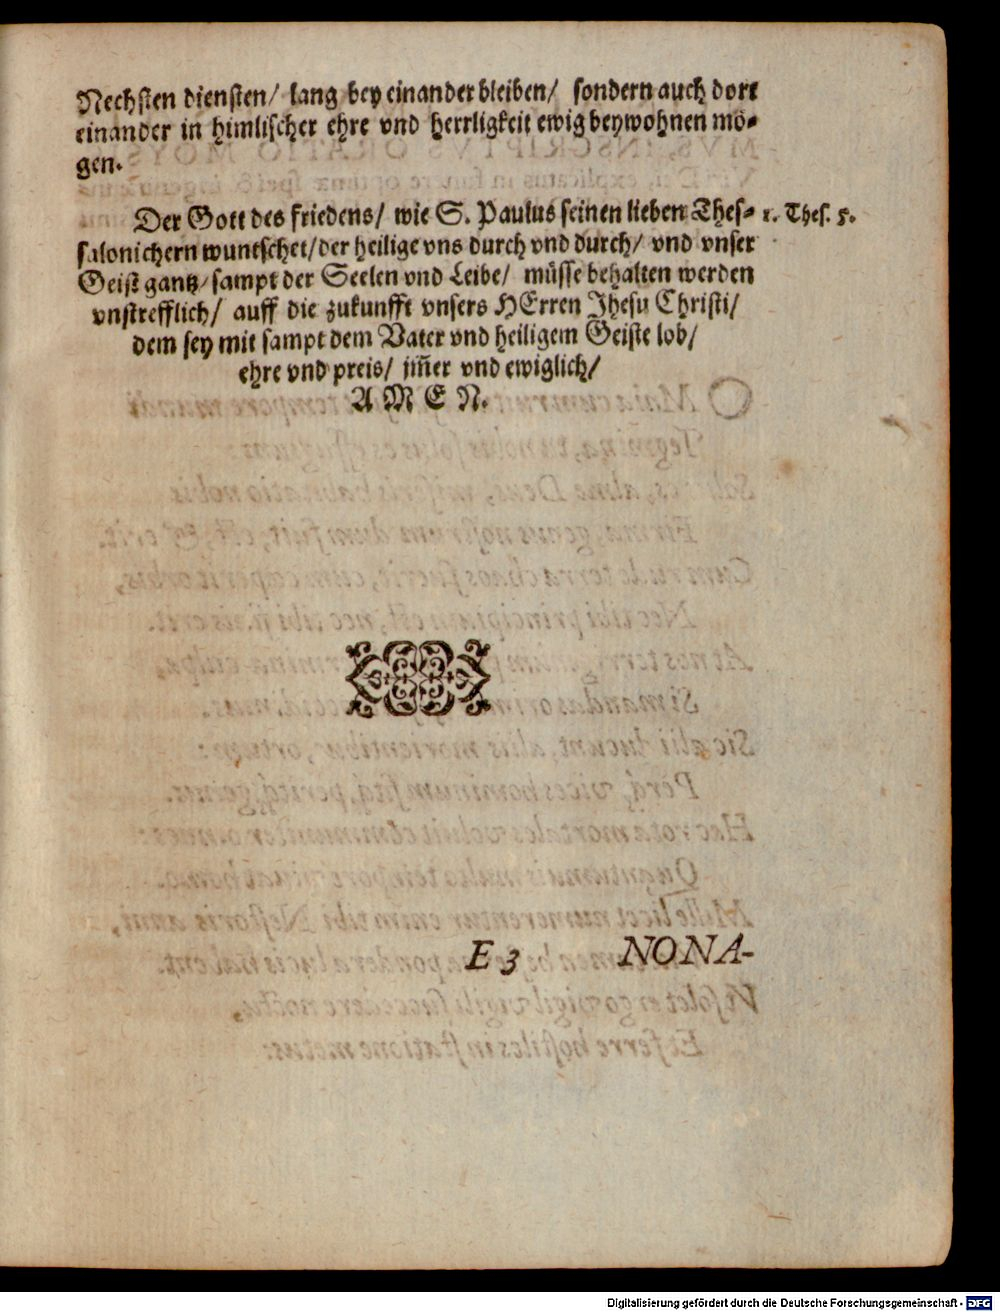 Nechsten diensten/ lang bey einander bleiben/ sondern auch dort
einander in himlischer ehre vnd herrligkeit ewig beywohnen mö-
gen.
Der Gott des friedens/ wie S. Paulus seinen lieben Thes- 1. Thes. 5.
salonichern wuntschet/ der heilige vns durch vnd durch/ vnd vnser
Geist gantz/ sampt der Seelen vnd Leibe/ müsse behalten werden
vnstrefflich/ auff die zukunfft vnsers HErren Jhesu Christi/
dem sey mit sampt dem Vater vnd heiligem Geiste lob/
ehre vnd preis/ im̃er vnd ewiglich/
A M E N.
E 3 NONA-
Digitalisierung gefördert durch die Deutsche Forschungsgemeinschaft - DFG